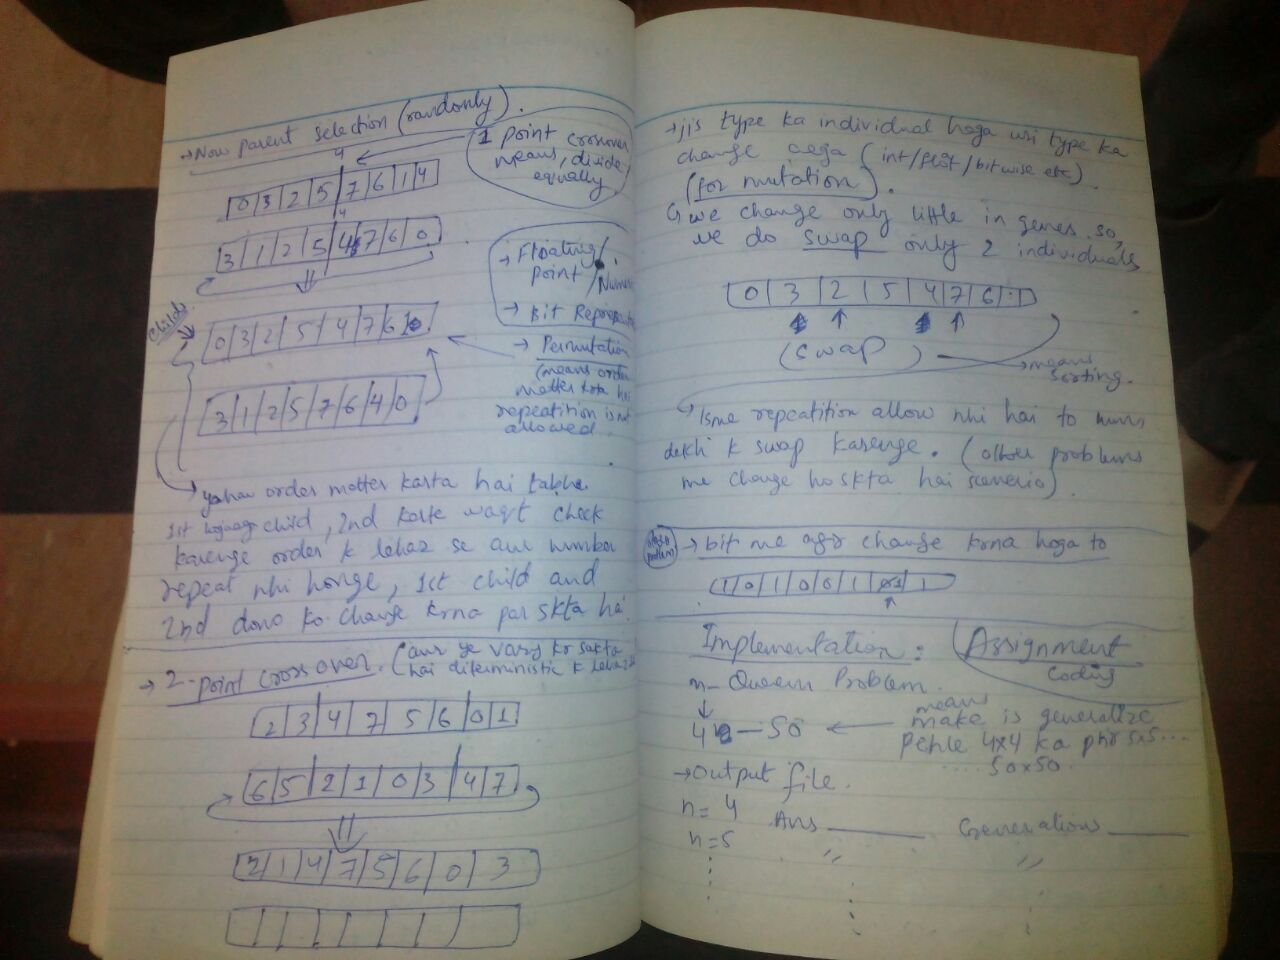 → Now parent selection (randomly).
1 point crossover
means, divide
equally
4
0 3 2 5 7 6 1 4
4
3 1 2 5 4 7 6 0
→ Floating
point /
→ Bit
childs
0 3 2 5 4 7 6
→ Permutation
(means order
matter krta hai
repeatition is not
allowed.
3 1 2 5 7 6 4 0
yahan order matter karta hai
1st child, 2nd karte waqt check
karenge order k lehaz se aur number
repeat nhi honge, 1st child and
2nd dono ko change krna par skta hai.
→ 2-point crossover. (aur ye vary kr sakta
hai diterministic k
2 3 4 7 5 6 0 1
6 5 2 1 0 3 4 7
2 1 4 7 5 6 0 3
→ jis type ka individual hoga usi type ka
change aega (int/float/bitwise etc).
(for mutation).
we change only little in genes so,
we do swap only 2 individuals
0 3 2 5 4 7 6 1
(Swap)
→ means
sorting.
Isme repeatition allow nhi hai to
dekh k swap karenge. (other problems
me change ho skta hai scenerio).
problem
→ bit me agr change krna hoga to
1 0 1 0 0 1 1
Implementation:
Assignment
Coding
n-Queen Problem.
4 — 50 ←
means
make is generalize
pehle 4x4 ka phr 5x5...
.... 50x50.
→ Output file.
n= 4 Ans ______ Generations ______
n=5 " "